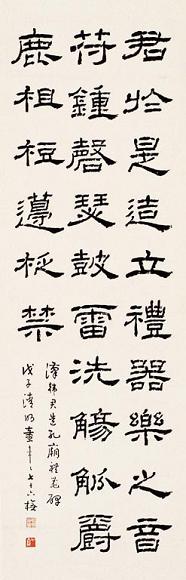 君於是造立禮器樂之音
苻鍾磬瑟鼓雷洗觴觚爵
鹿柤梪籩柉禁
漢韓君造孔廟禮器碑
戊子清明童年七十六